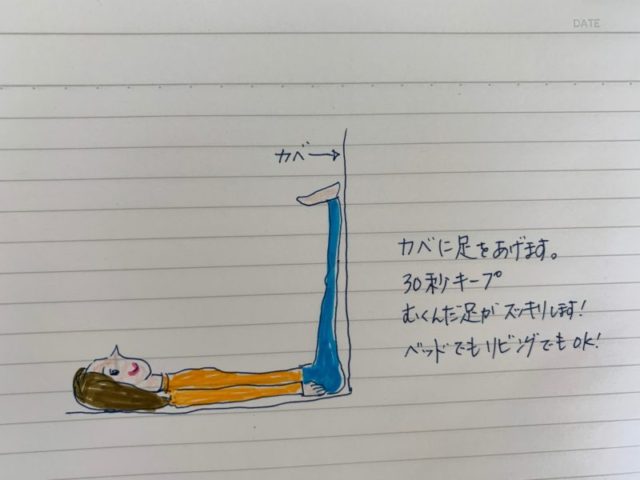 DATE
カベ→
カベに足をあげます。
30秒キープ
むくんだ足がスッキリします!
ベッドでもリビングでもOK!